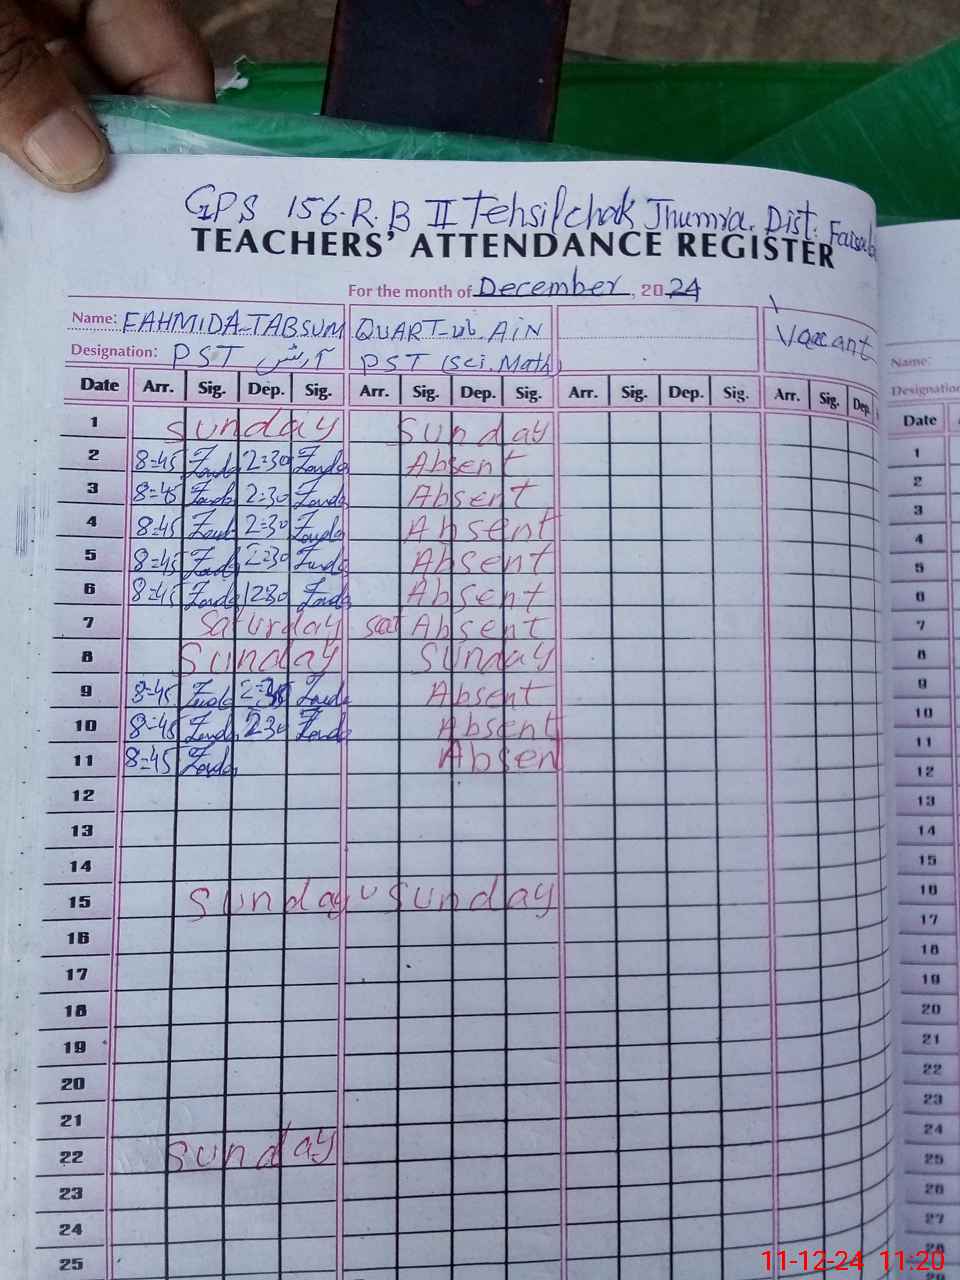 GPS 156.R.B II Tehsil chak Jhumra. Dist: Faisalab
TEACHERS' ATTENDANCE REGISTER
For the month of December, 2024
Name: FAHMIDA-TABSUM QUART-ul.AiN Vaccant Name:
Designation: PST PST (Sci.Math) Designation
Date Arr. Sig. Dep. Sig. Arr. Sig. Dep. Sig. Arr. Sig. Dep. Sig. Arr. Sig. Dep. Date
1 Sunday Sunday 1
2 8=45 2=30 Absent 2
3 8=45 2=30 Absent 3
4 8=45 2=30 Absent 4
5 8=45 2=30 Absent 5
6 8=45 1230 Absent 6
7 Saturday sat Absent 7
8 Sunday Sunday 8
9 8=45 2=30 Absent 9
10 8=45 230 Absent 10
11 8=45 Absen 11
12 12
13 13
14 14
15 Sunday Sunday 15
16 16
17 17
18 18
19 19
20 20
21 21
22 Sunday 22
23 23
24 24
25 25
26
27
28
11-12-24 11:20